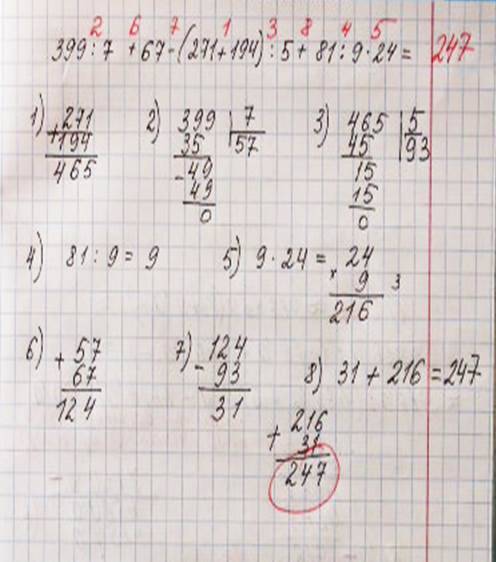 2 6 7 1 3 8 4 5
399 : 7 + 67 - (271 + 194) : 5 + 81 : 9 · 24 = 247
1) 271
+ 194
465
2) 399 | 7
35 57
- 49
49
0
3) 465 | 5
45 93
15
15
0
4) 81 : 9 = 9
5) 9 · 24 = 24
x 9 3
216
6) + 57
67
124
7) - 124
93
31
8) 31 + 216 = 247
+ 216
31
247